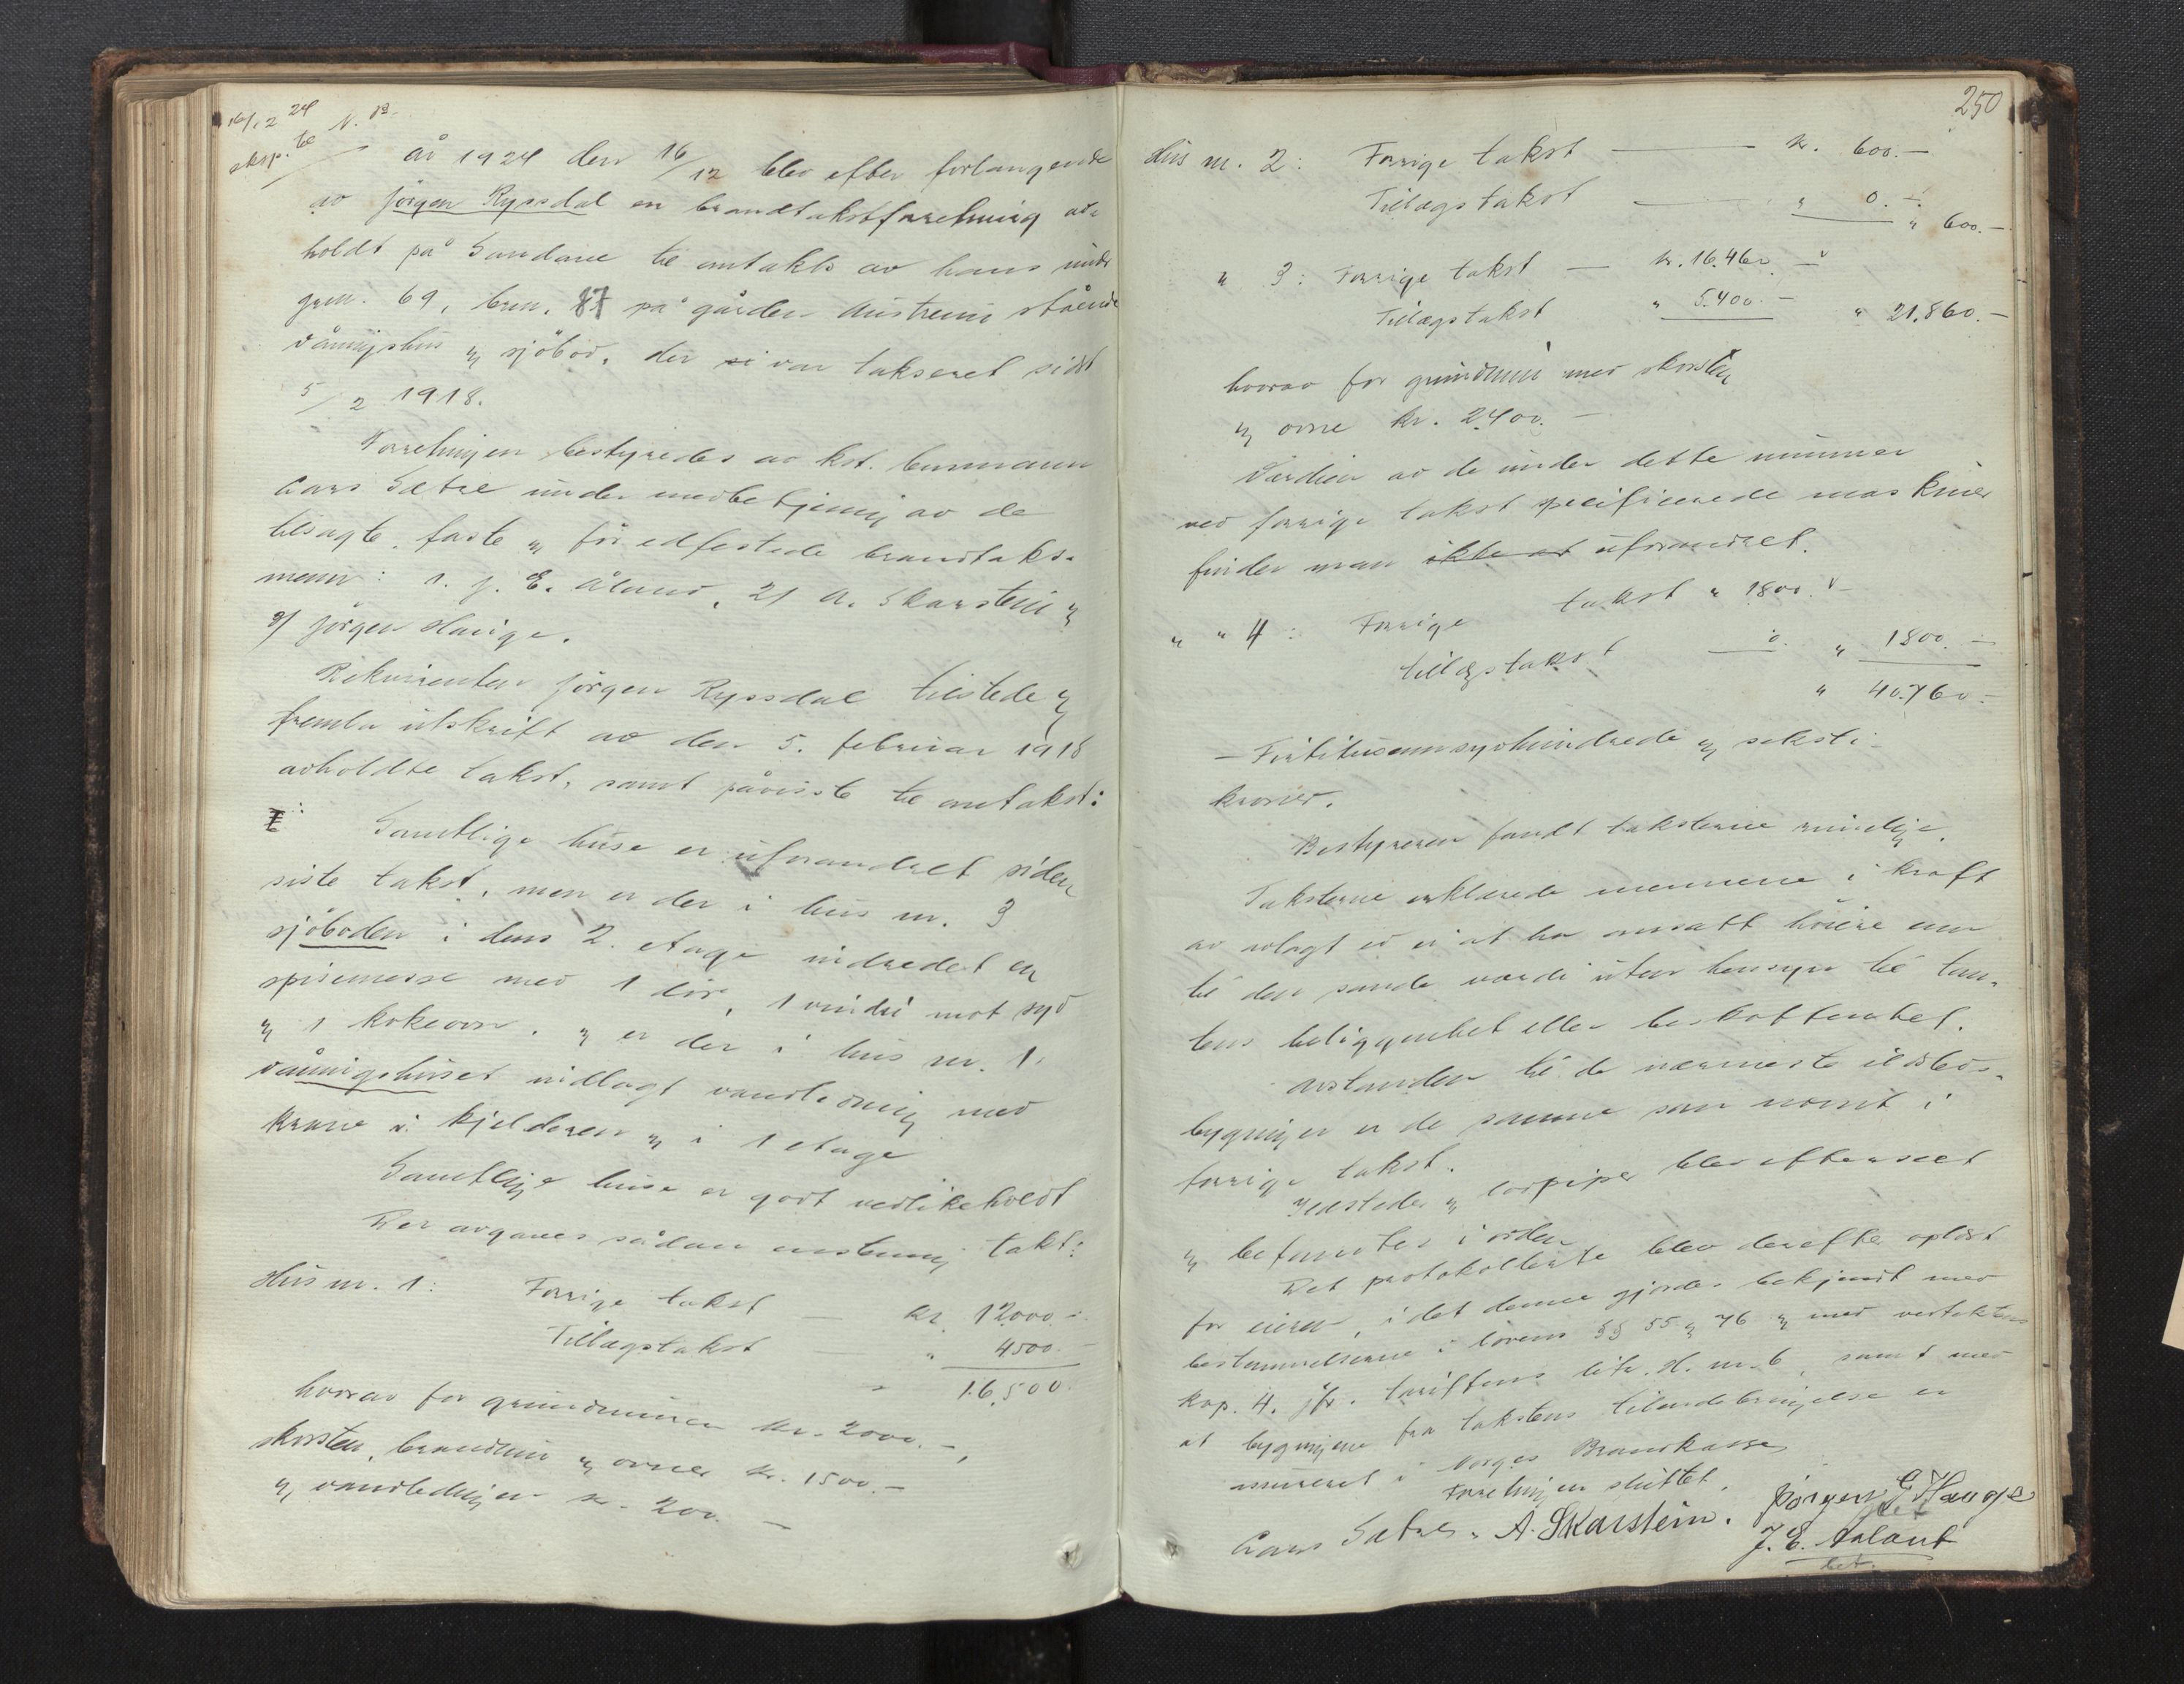 16/12 24
eksp. te N. B.
År 1924 den 16/12 blev efter forlangende
av Jörgen Ryssdal en brandtakstforretning av-
holdt på Sandane til omtakst av hans under
grnr. 69, brnr. 87 på gården Austrem stående
våningshus og sjöbod, der var takseret sidst
5/2 1918.
Forretningen bestyredes av kst. lensmann
Lars Sætre under medbetjening av de
tilsagte, faste og før edfestede brandtakst-
menn: 1. J. E. Åland, 2/ A. Skarstein og
3/ Jörgen Hauge.
Rekvirenten Jörgen Ryssdal tilstede og
fremla utskrift av den 5. februar 1918
avholdte takst, samt påviste til omtakst:
Samtlige huse er uforandret siden
siste takst, men er der i hus nr. 3
sjöboden i dens 2. etage indredet en
spisemesse med 1 dör, 1 vindu mot syd
og 1 kokeovn, og er der i hus nr. 1.
våningshuset indlagt vandledning med
krane i kjelderen og i 1 etage
Samtlige huse er godt vedlikeholdt
Der avgaves sådan enstemmig takst:
Hus nr. 1: Forrige takst – kr. 12000.-
Tillægstakst " 4500.-
" 16,500.
hvorav for grundmuren kr. 2000.-,
skorsten, brandmur og ovner kr. 1500.-
og vandledningen kr. 200.-
250
Hus nr. 2: Forrige takst – kr. 600.-
Tillægstakst – " 0.- " 600.-
" 3: Forrige takst – kr. 16.460.-
Tillægstakst " 5.400.- " 21.860.-
hvorav for grundmur med skorsten
og ovne kr. 2400.-
Værdien av de under dette nummer
ved forrige takst specificerede maskiner
finder man ikke at uforandret.
" " 4: Forrige takst " 1800.-
tillægstakst 0. " 1800.-
" 40.760.-
– Firtitusensyvhundrede og seksti-
kroner.
Bestyreren fandt taksterne rimelige.
Taksterne erklærede mennene i kraft
av avlagt ed ei at ha ansatt höiere enn
til den sande værdi uten hensyn til tom-
tens beliggenhet eller beskaffenhet.
Avstanden til de nærmeste ildsteds-
bygninger er de samme som nævnt i
forrige takst.
Ildsteder og lodpiper blev efterseet
og befantes i orden
Det protokollerte blev derefter oplæst
for eieren, idet denne gjordes bekjendt med
bestemmelserne i lovens §§ 55 og 76 og med vedtektens
kap. 4. jfr. tariffens litr. H. nr. 6, samt med
at bygningene fra takstens tilendebringelse er
assureret i Norges Brandkasse
Forretningen sluttet.
Lars Sætre. A. Skarstein. Jørgen E Hauge
J. E. Aaland
bet.